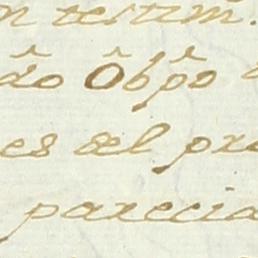 n testim.
do Obpo
es del pre
parecia